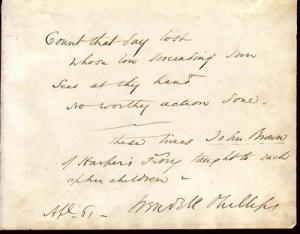 Count that day lost
Whose low descending sun
Sees at thy hand
No worthy action done –
These lines John Brown
of Harper's Ferry taught to each
of his children –
Apl. 61 – Wendell Phillips